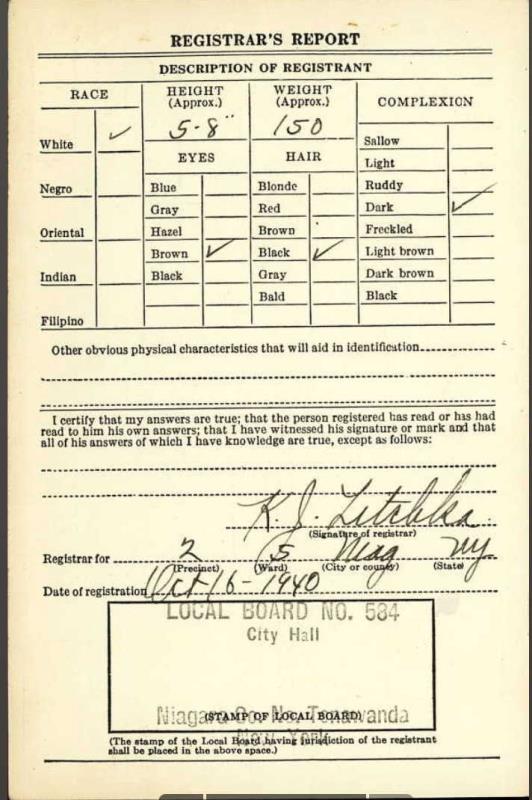 REGISTRAR'S REPORT
DESCRIPTION OF REGISTRANT
RACE
HEIGHT
(Approx.)
WEIGHT
(Approx.)
COMPLEXION
5-8"
150
White ✓
EYES
HAIR
Sallow
Light
Negro
Blue
Blonde
Ruddy
Gray
Red
Dark ✓
Oriental
Hazel
Brown
Freckled
Brown ✓
Black ✓
Light brown
Indian
Black
Gray
Dark brown
Bald
Black
Filipino
Other obvious physical characteristics that will aid in identification
I certify that my answers are true; that the person registered has read or has had
read to him his own answers; that I have witnessed his signature or mark and that
all of his answers of which I have knowledge are true, except as follows:
K. J. Litchka
(Signature of registrar)
Registrar for 2 5 Niag NY
(Precinct) (Ward) (City or county) (State)
Date of registration Oct 16-1940
LOCAL BOARD NO. 584
City Hall
Niagara Co. No. Tonawanda
(STAMP OF LOCAL BOARD)
New York
(The stamp of the Local Board having jurisdiction of the registrant
shall be placed in the above space.)